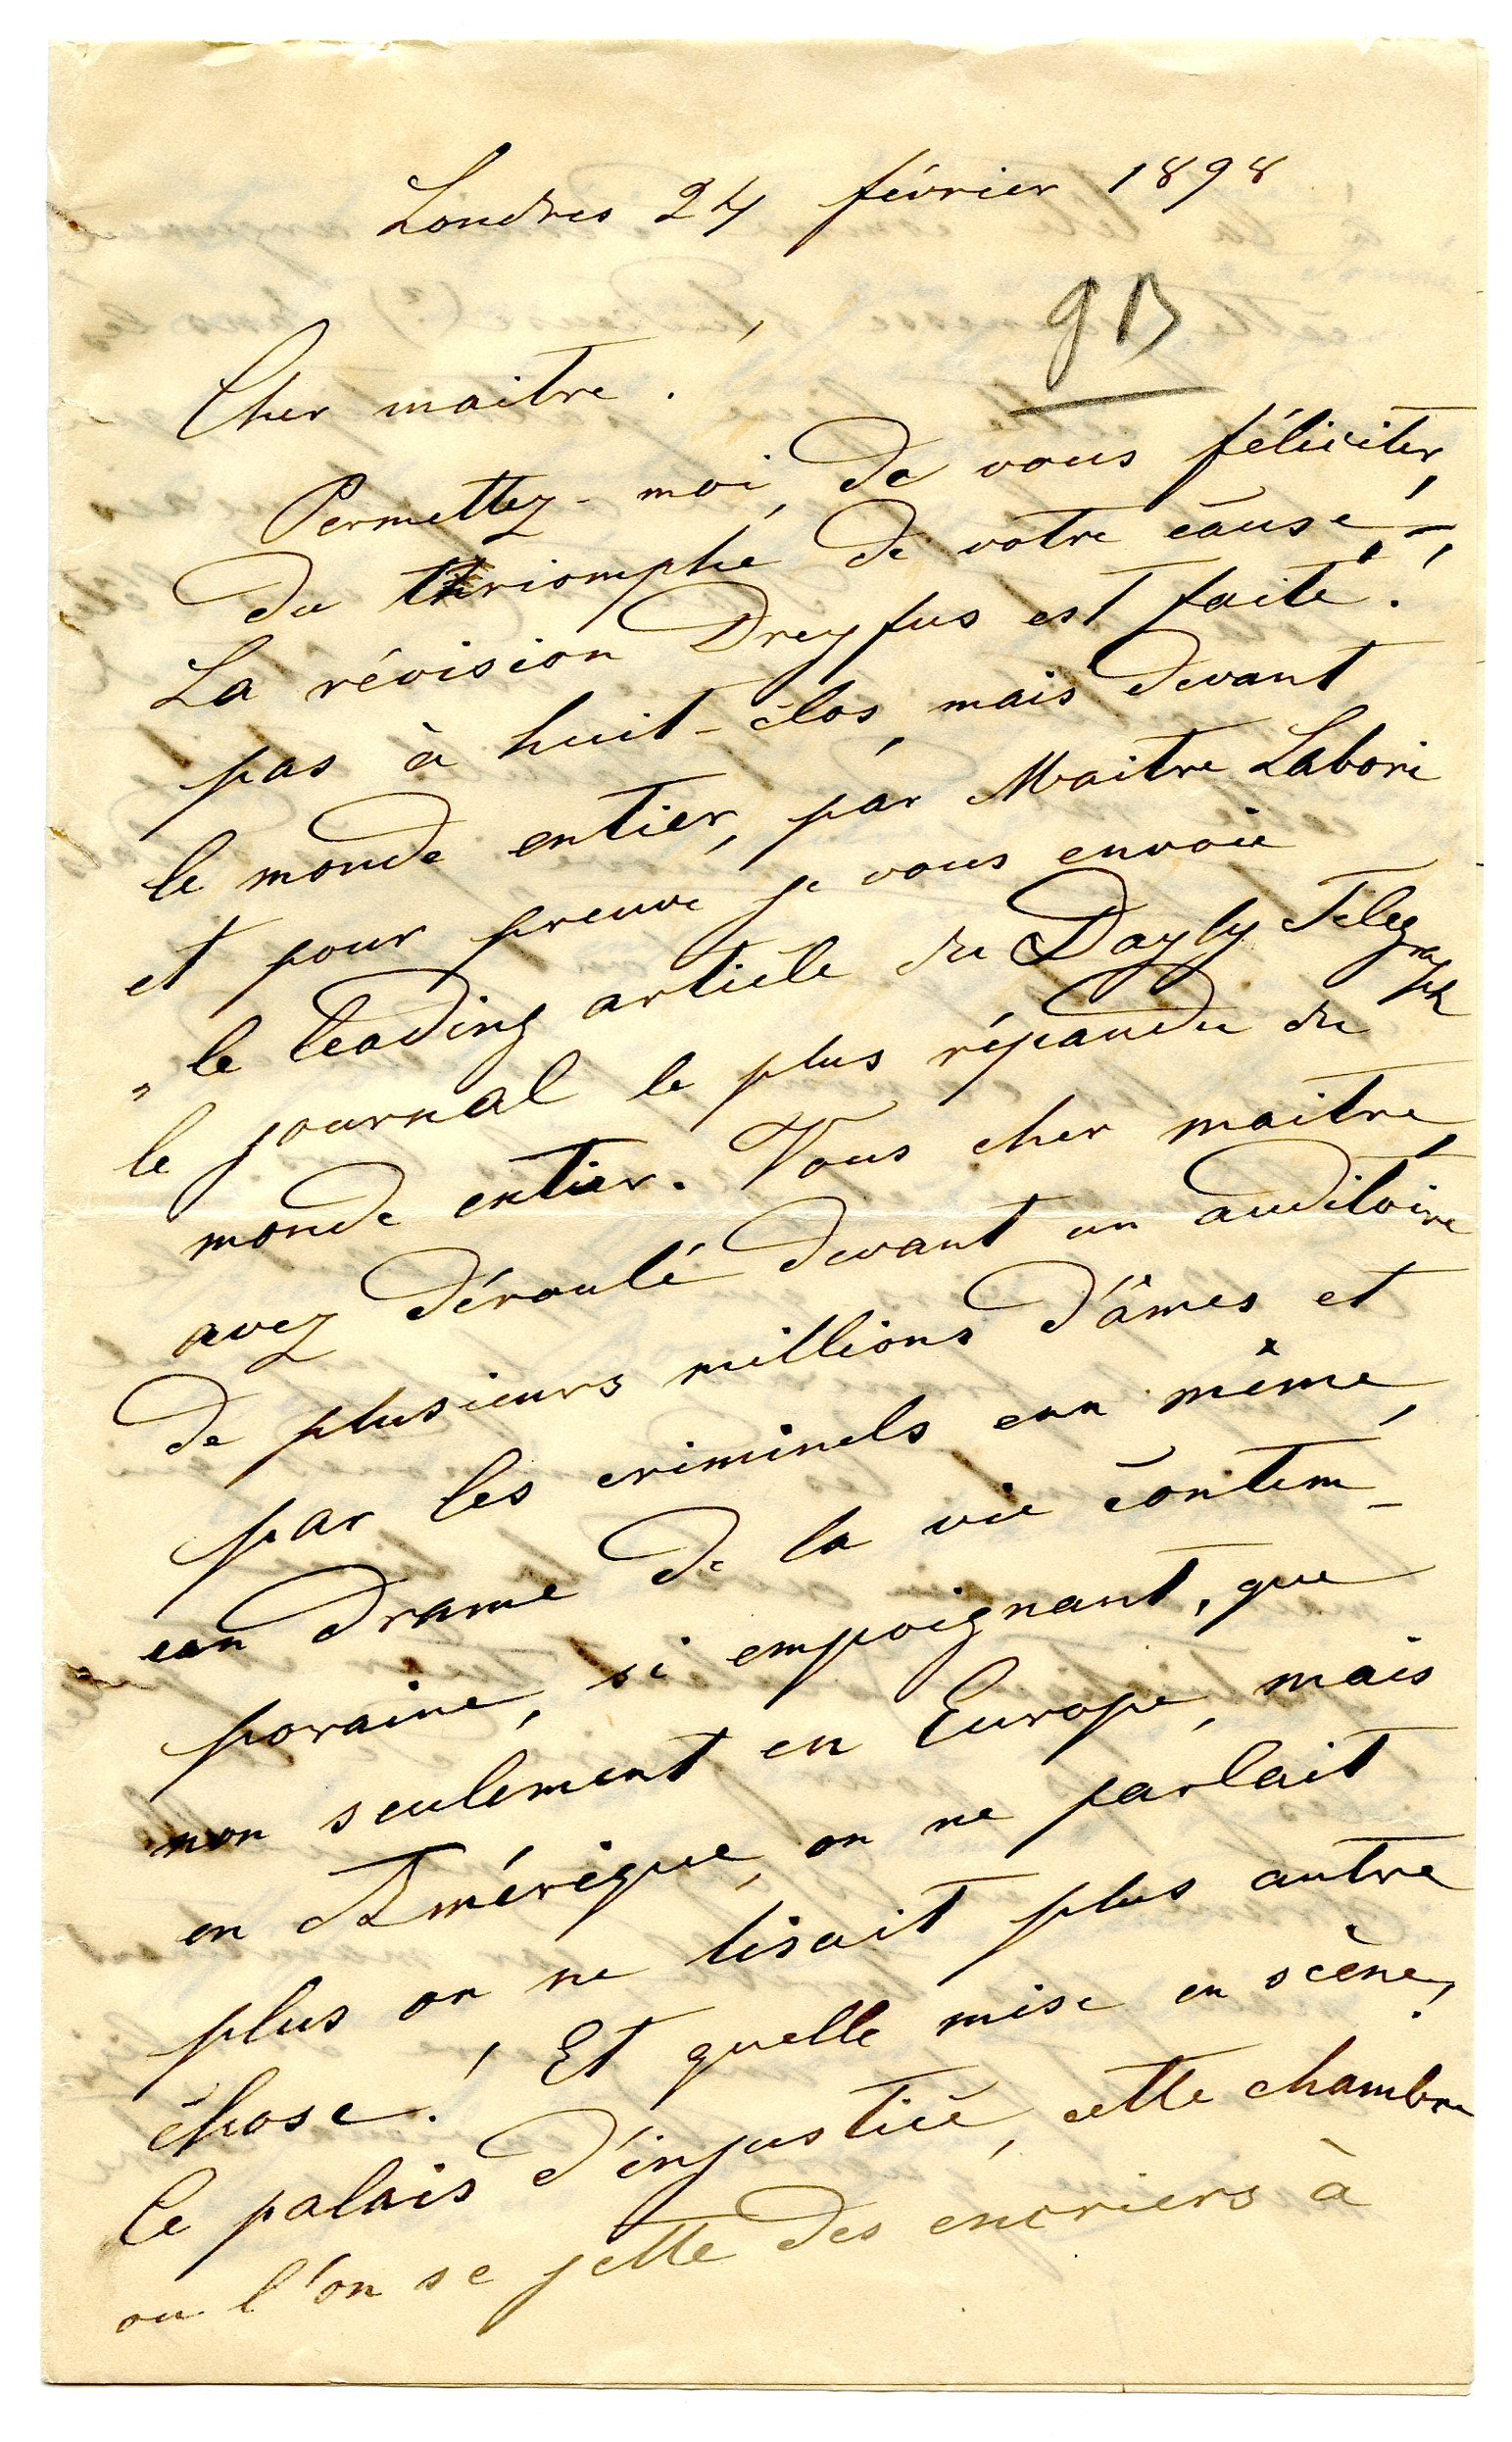 Londres 24 février 1898
GB
Cher maitre !
Permettez-moi, de vous féliciter,
du triomphe de votre cause, –
La révision Dreyfus est faite !
pas à huit-clos, mais devant
le monde entier, par Maitre Labori
et pour preuve je vous envoie
„ le leading article du Dayly Telegraph
le journal le plus répandu du
monde entier. Vous cher maitre,
avez déroulé devant un auditoire
de plusieurs millions d'âmes et
par les criminels eux même,
un drame de la vie contem-
poraine, si empoignant, que
non seulement en Europe, mais
en Amérique, on ne parlait
plus on ne lisait plus autre
chose ! Et quelle mise en scène !
Ce palais d'injustice, cette chambre
ou l'on se jette des encriers à